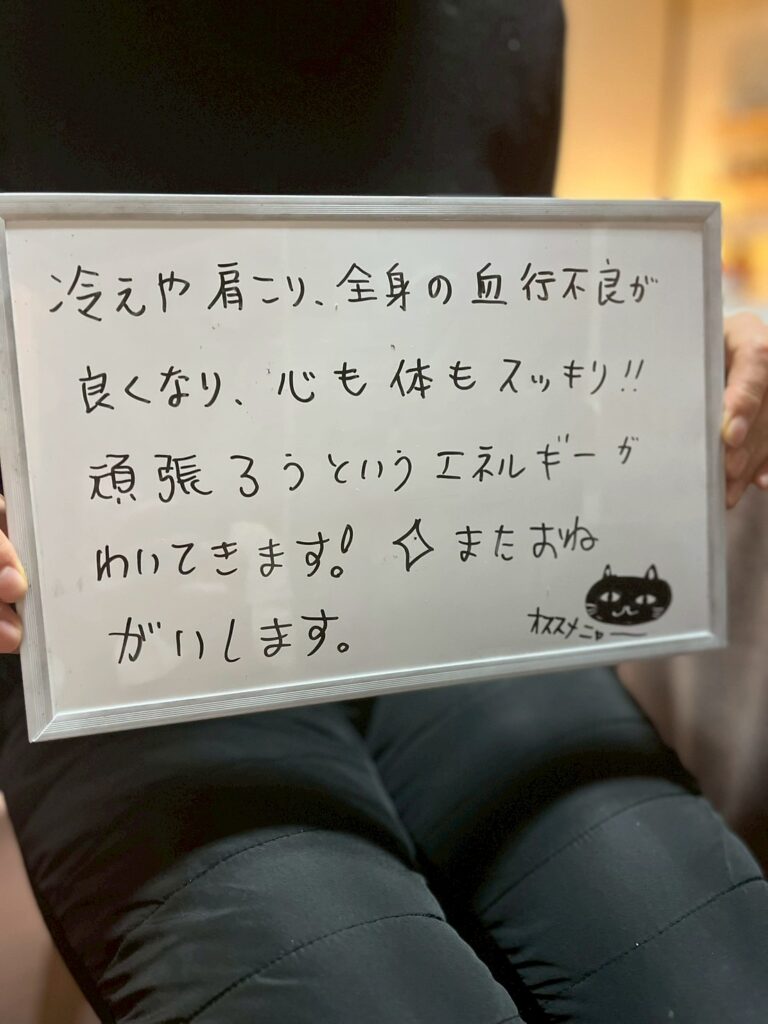 冷えや肩こり、全身の血行不良が
良くなり、心も体もスッキリ!!
頑張ろうというエネルギーが
わいてきます! またおね
がいします。
オススメニャー